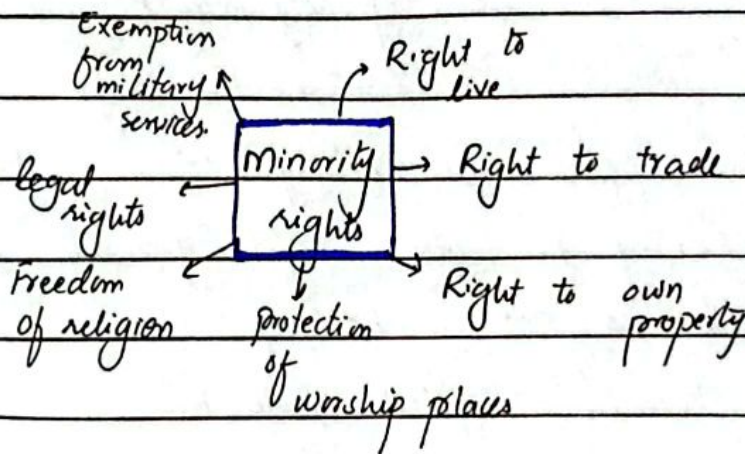 Exemption
from
military
services.
Right to
live
minority
rights
Right to trade
legal
rights
Freedom
of religion
protection
of
worship places
Right to own
property